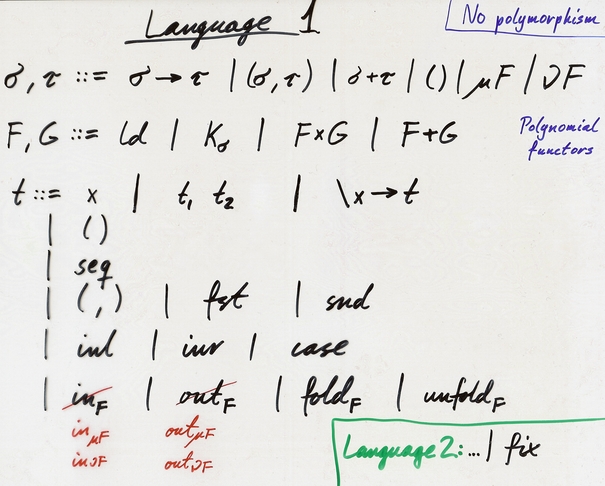 Language 1
No polymorphism
σ, τ ::= σ → τ | (σ, τ) | σ + τ | () | μF | νF
F, G ::= Id | Kσ | F×G | F+G
Polynomial
functors
t ::= x | t₁ t₂ | \x → t
| ()
| seq
| (,) | fst | snd
| inl | inr | case
| in_F | out_F | fold_F | unfold_F
in_μF out_μF
in_νF out_νF
Language 2: ... | fix